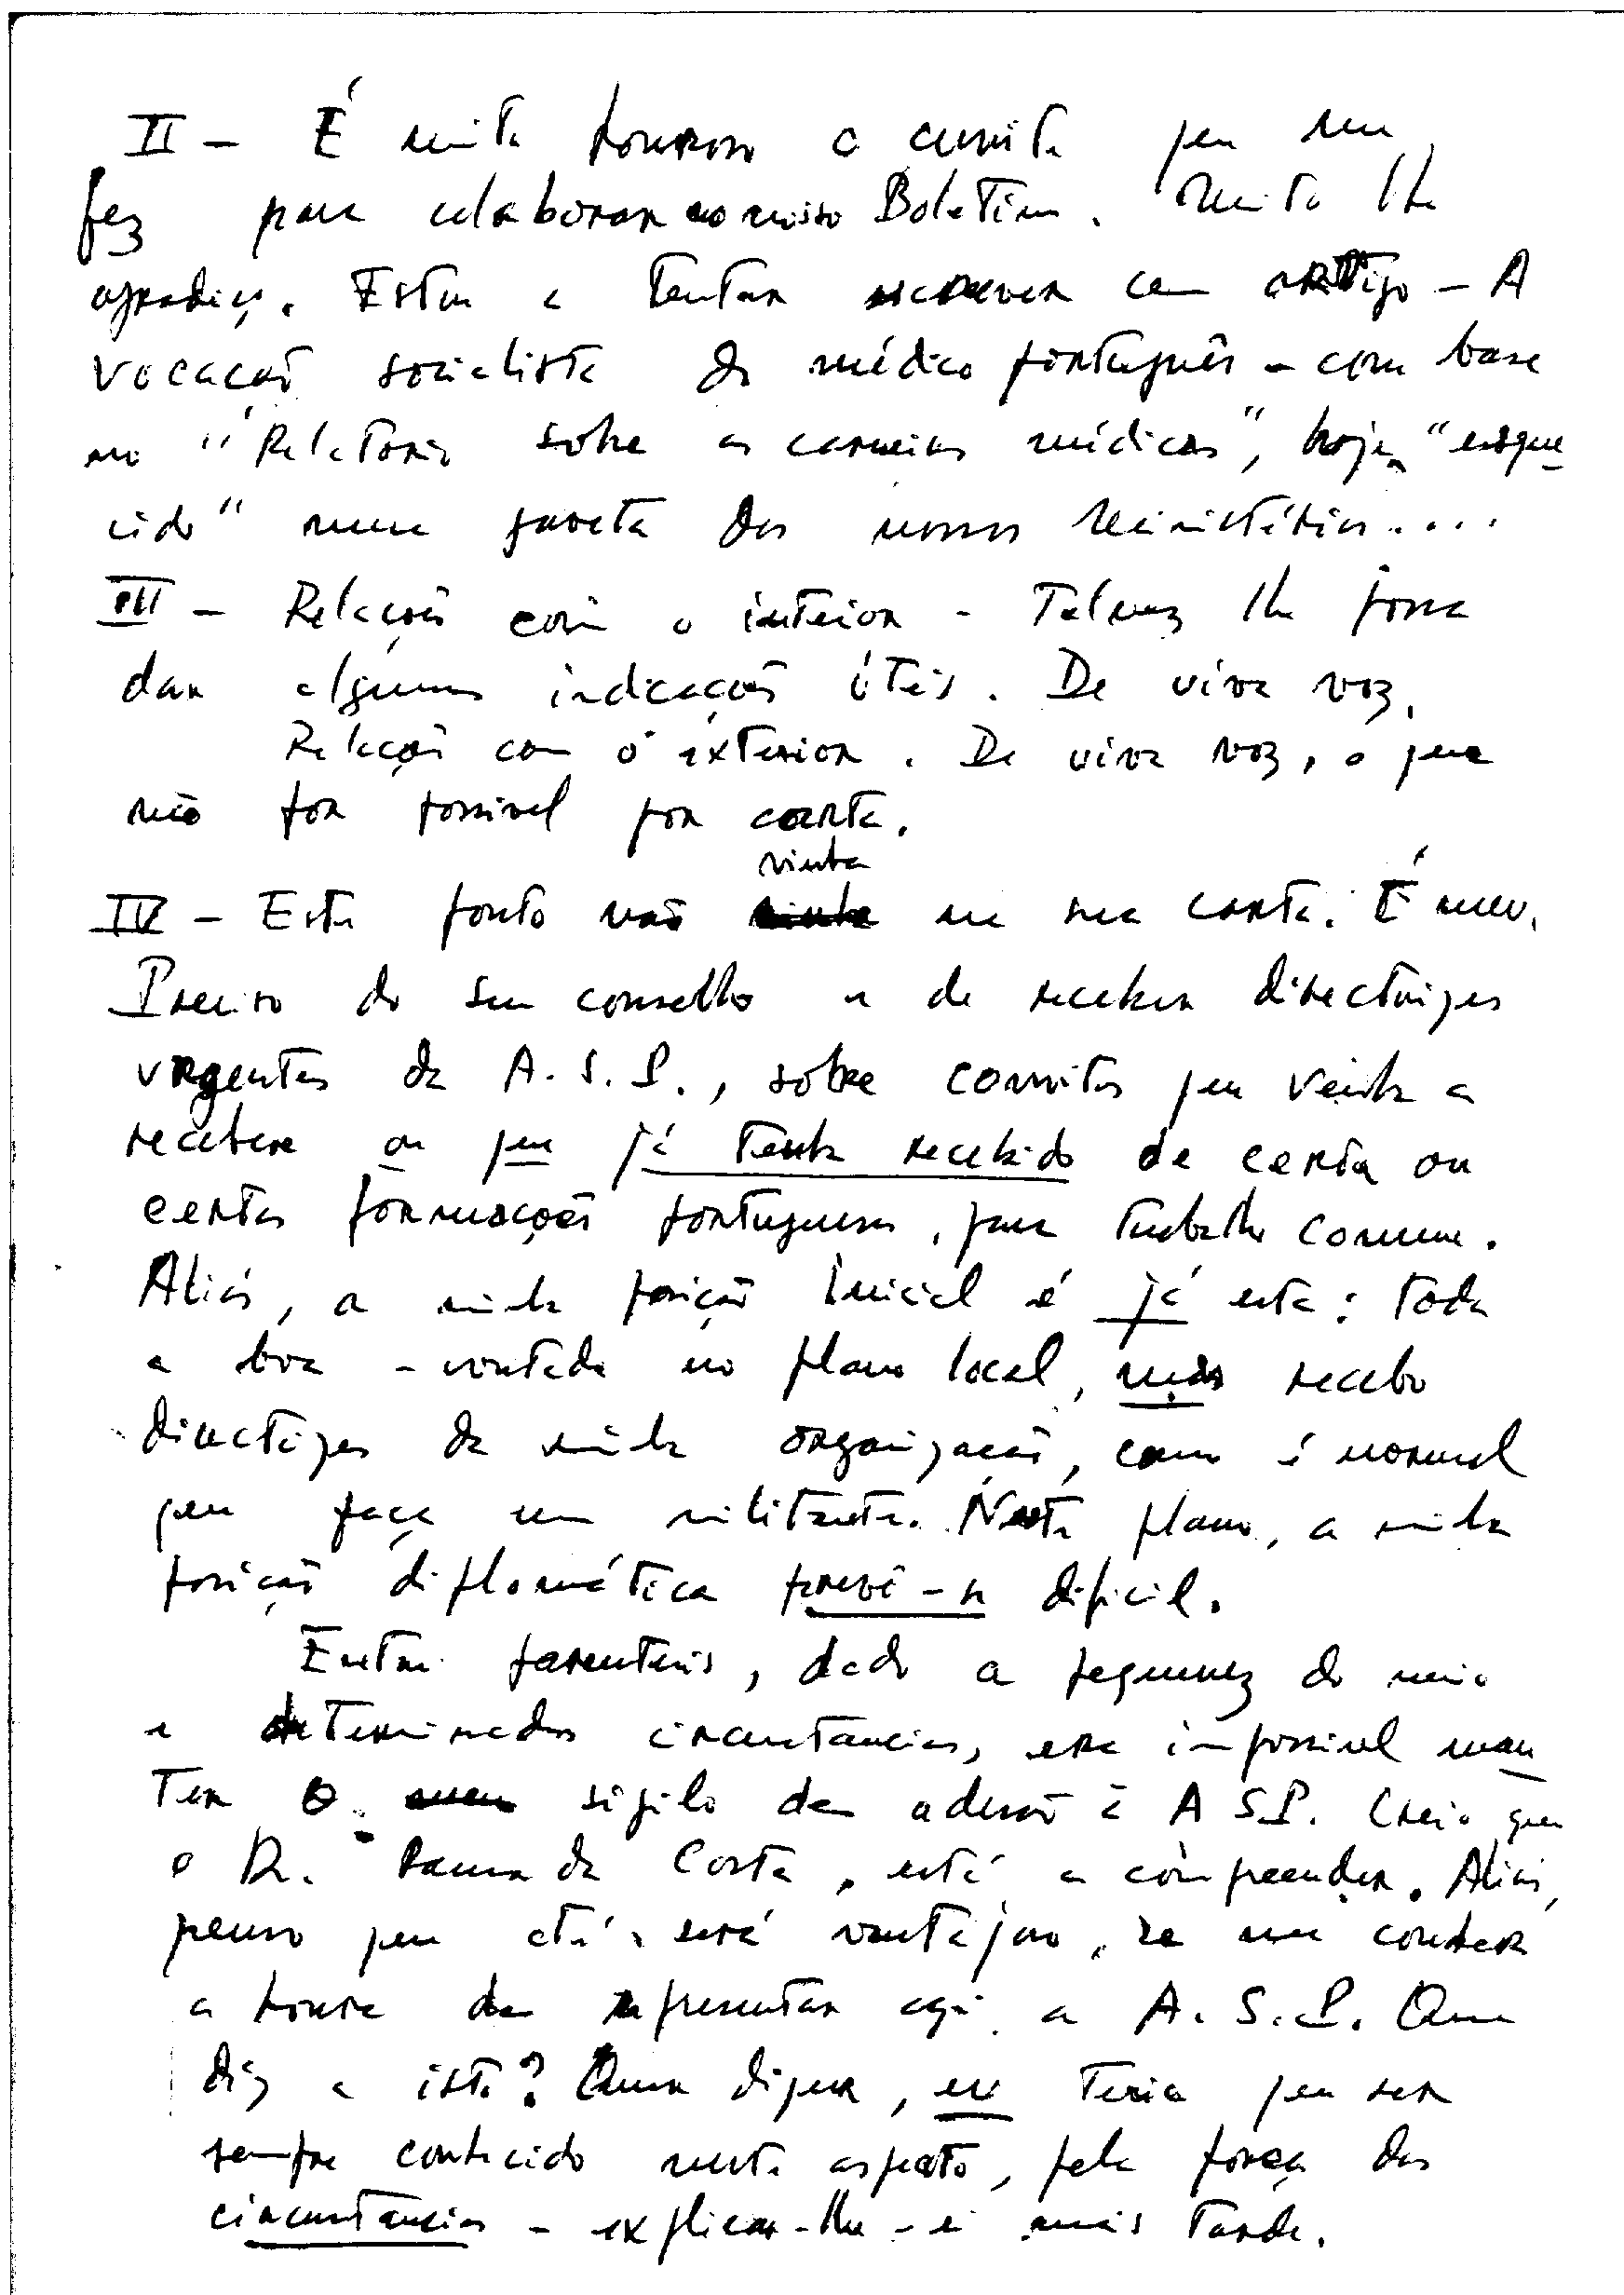 II - É muito honroso o convite que me
fez para colaborar no nosso Boletim. Muito lhe
agradeço. Estou a tentar escrever um artigo - A
vocação socialista do médico português - com base
no "Relatório sobre as carreiras médicas", hoje "esque
cido" numa gaveta dos nossos Ministérios....
III - Relações com o interior - Talvez lhe possa
dar algumas indicações úteis. De viva voz.
Relações com o exterior. De viva voz, o que
não for possível por carta.
vinha
IV - Este ponto não na sua carta. É meu.
Preciso do seu conselho e de receber directrizes
urgentes da A.S.P., sobre convites que venha a
receber ou que já tenha recebido de certa ou
certas formações portuguesas, para trabalho comum.
Aliás, a minha posição inicial é já esta: toda
a boa-vontade no plano local, mas recebo
directrizes da minha organização, como é normal
que faça um militante. Neste plano, a minha
posição diplomática prevê-se difícil.
Entre parentesis, dado a pequenez do meio
e determinadas circunstâncias, era impossível man
ter o sigilo da adesão à ASP. Creio que
o Dr. Ramos da Costa, está a compreender. Aliás,
penso que até será vantajoso, se me conceder
a honra de representar aqui a A.S.P. Que
diz a isto? Quer dizer, eu teria que ser
sempre conhecido neste aspecto, pela força das
circunstâncias - explicar-lhe-ei mais tarde.